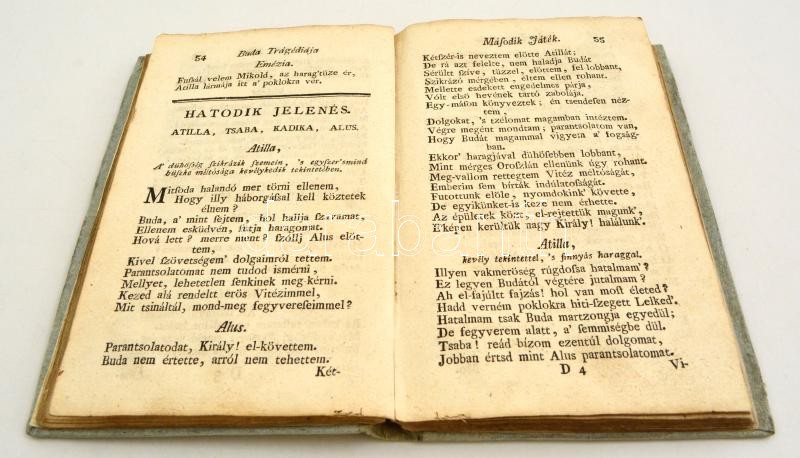 54
Buda Tragédiája
Emézia.
Fussál velem Mikold, az harag'tüze ér,
Atilla lármája itt a' poklokra vér.
HATODIK JELENÉS.
ATILLA, TSABA, KADIKA, ALUS.
Atilla,
A' dühösség szikrázik szemein, 's egyszer'smind
büszke méltósága kevélykedik tekintetében.
Mitsoda halandó mer törni ellenem,
Hogy illy háborgással kell köztetek
élnem?
Buda, a' mint sejtem, hol hallja szavamat,
Ellenem esküdvén, szítja haragomat.
Hová lett? merre ment? szóllj Alus előt-
tem,
Kivel szövetségem' dolgairól tettem.
Parantsolatomat nem tudod ismérni,
Mellyet, lehetetlen senkinek meg-kérni.
Kezed alá rendeltt erös Vitézimmel,
Mit tsináltál, mond-meg fegyvereseimmel?
Alus.
Parantsolatodat, Király! el-követtem.
Buda nem értette, arról nem tehettem.
Két-
Második Játék.
55
Kétszér-is neveztem elötte Atillát;
De rá azt felelte, nem haladja Budát
Sérült szíve, tüzzel, elöttem, fel lobbant,
Szikrázó mérgében, éltem ellen rohant.
Mellette esdekett engedelmes párja,
Vólt elsö hevének tartó zabolája.
Egy-máson könyveztek; én tsendesen néz-
tem,
Dolgokat, 's tzélomat magamban intéztem.
Végre megént mondtam; parantsolatom van,
Hogy Budát magammal vigyem a' fogság-
ban.
Ekkor haragjával dühösebben lobbant,
Mint mérges Oroszlán ellenünk úgy rohant.
Meg-vallom rettegtem Vitéz méltóságát,
Emberim sem bírták indúlatosságát.
Futottunk elöle, nyomdokink' követte,
De egyikünket-is keze nem érhette.
Az épűletek közt, el-rejtettük magunk',
E'képen kerűltük nagy Király! halálunk'.
Atilla,
kevély tekintettel, 's finnyás haraggal.
Illyen vakmeröség rúgdossa hatalmam'?
Ez legyen Budától végtére jutalmam?
Ah el-fajúltt fajzás! hol van most életed?
Hadd verném poklokra hiti-szegett Lelked'.
Hatalmam tsak Buda martzongja egyedül;
De fegyverem alatt, a' semmiségbe dül.
Tsaba! reád bízom ezentúl dolgomat,
Jobban értsd mint Alus parantsolatomat.
D 4
Vi-